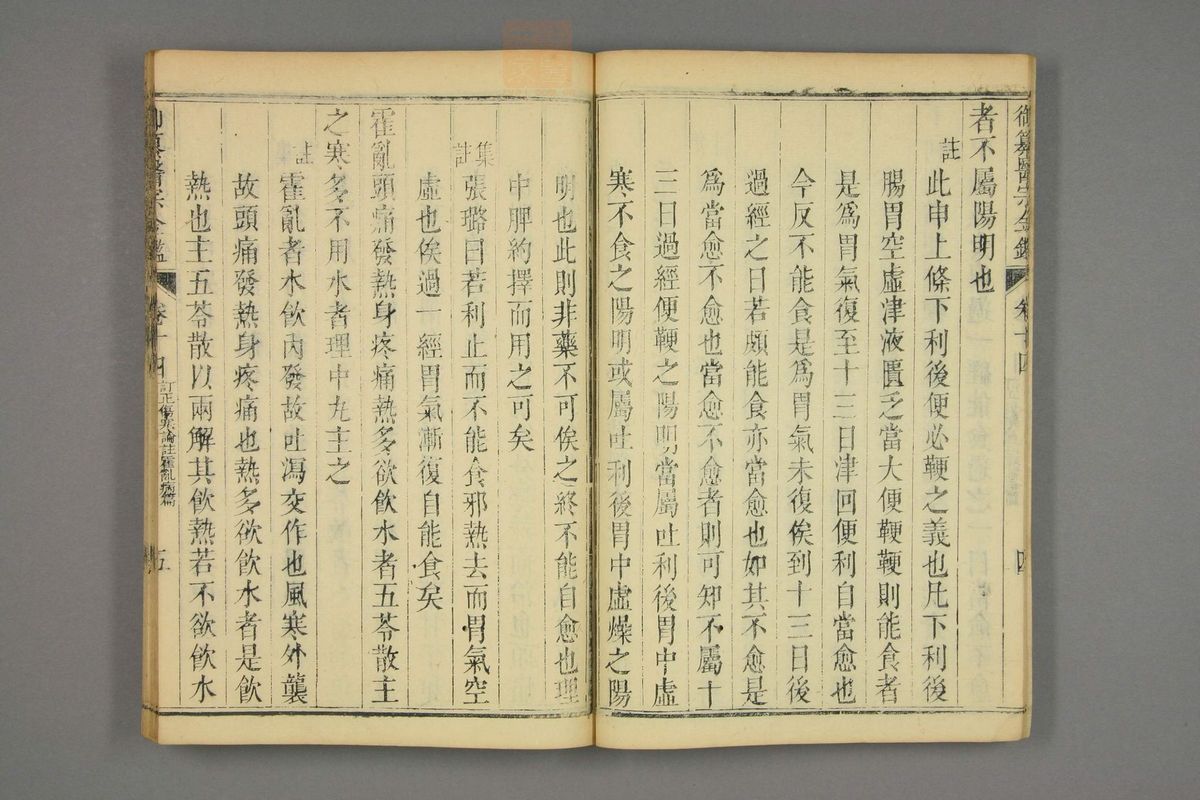 御纂醫宗金鑑 卷十四 四
者不屬陽明也
註
此申上條下利後便必鞕之義也凡下利後
腸胃空虛津液匱乏當大便鞕鞕則能食者
是為胃氣復至十三日津回便利自當愈也
今反不能食是為胃氣未復俟到十三日後
過經之日若頗能食亦當愈也如其不愈是
為當愈不愈也當愈不愈者則可知不屬十
三日過經便鞕之陽明當屬吐利後胃中虛
寒不食之陽明或屬吐利後胃中虛燥之陽
明也此則非藥不可俟之終不能自愈也理
中脾約擇而用之可矣
集註
張璐曰若利止而不能食邪熱去而胃氣空
虛也俟過一經胃氣漸復自能食矣
霍亂頭痛發熱身疼痛熱多欲飲水者五苓散主
之寒多不用水者理中丸主之
註
霍亂者水飲內發故吐瀉交作也風寒外襲
故頭痛發熱身疼痛也熱多欲飲水者是飲
熱也主五苓散以兩解其飲熱若不欲飲水
御纂醫宗金鑑 卷十四 訂正傷寒論註霍亂病篇 五